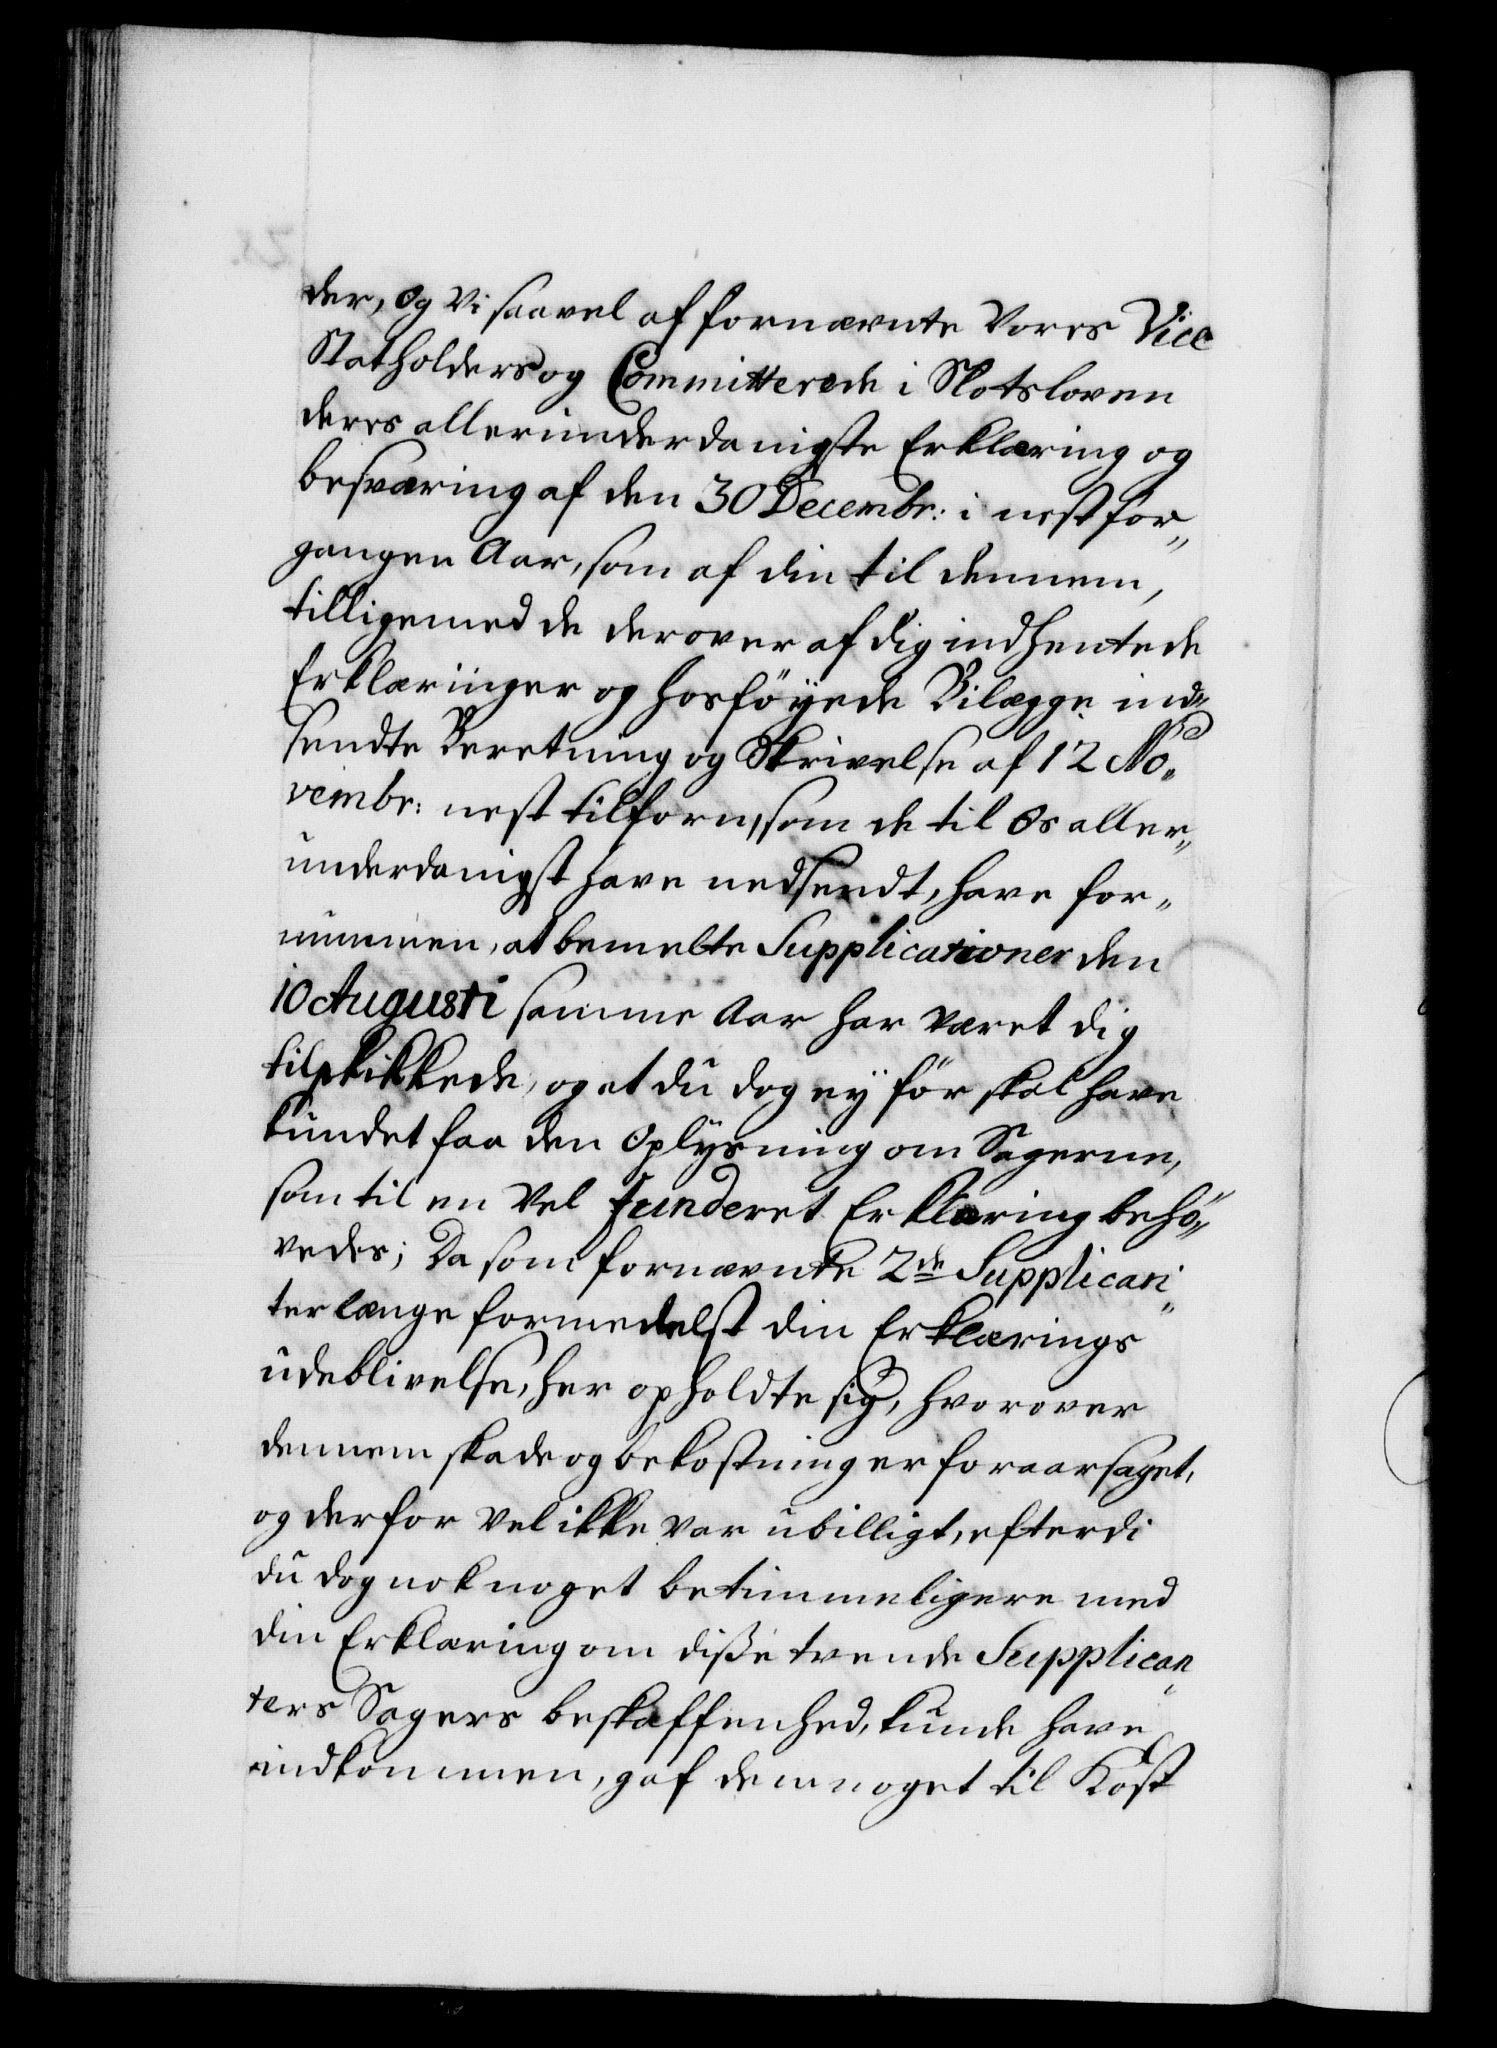 der, og Vi saavel af fornævnte Vores Vice
Statholders og Committerede i Slotsloven
deres allerunderdanigste Erklæring og
besværing af den 30 Decembr: i nest for„
gangen Aar, som af din til dennem,
tilligemed de derover af dig indhentede
Erklæringer og hosföyede Bilægge ind„
sendte Beretning og Skrivelse af 12 No„
vembr: nest tilforn, som de til Os aller„
underdanigst have nedsendt, have for„
nummen, at bemelte Supplicationer den
10 Augusti samme Aar har været dig
tilskikkede, og at du dog ey för skal have
kundet faa den Oplysning om Sagerne,
som til en Vel funderet Erklæring behö„
vedes; Da som fornævnte 2de Supplican„
ter længe formedelst din Erklærings
udeblivelse, her opholdte sig, hvorover
dennem skade og bekostninger foraarsaget,
og derfor vel ikke var ubilligt, efterdi
du dog nok noget betimmeligere med
din Erklæring om diße tvende Supplican„
ters Sagers beskaffenhed, kunde have
indkommen, gaf dem noget til Kost